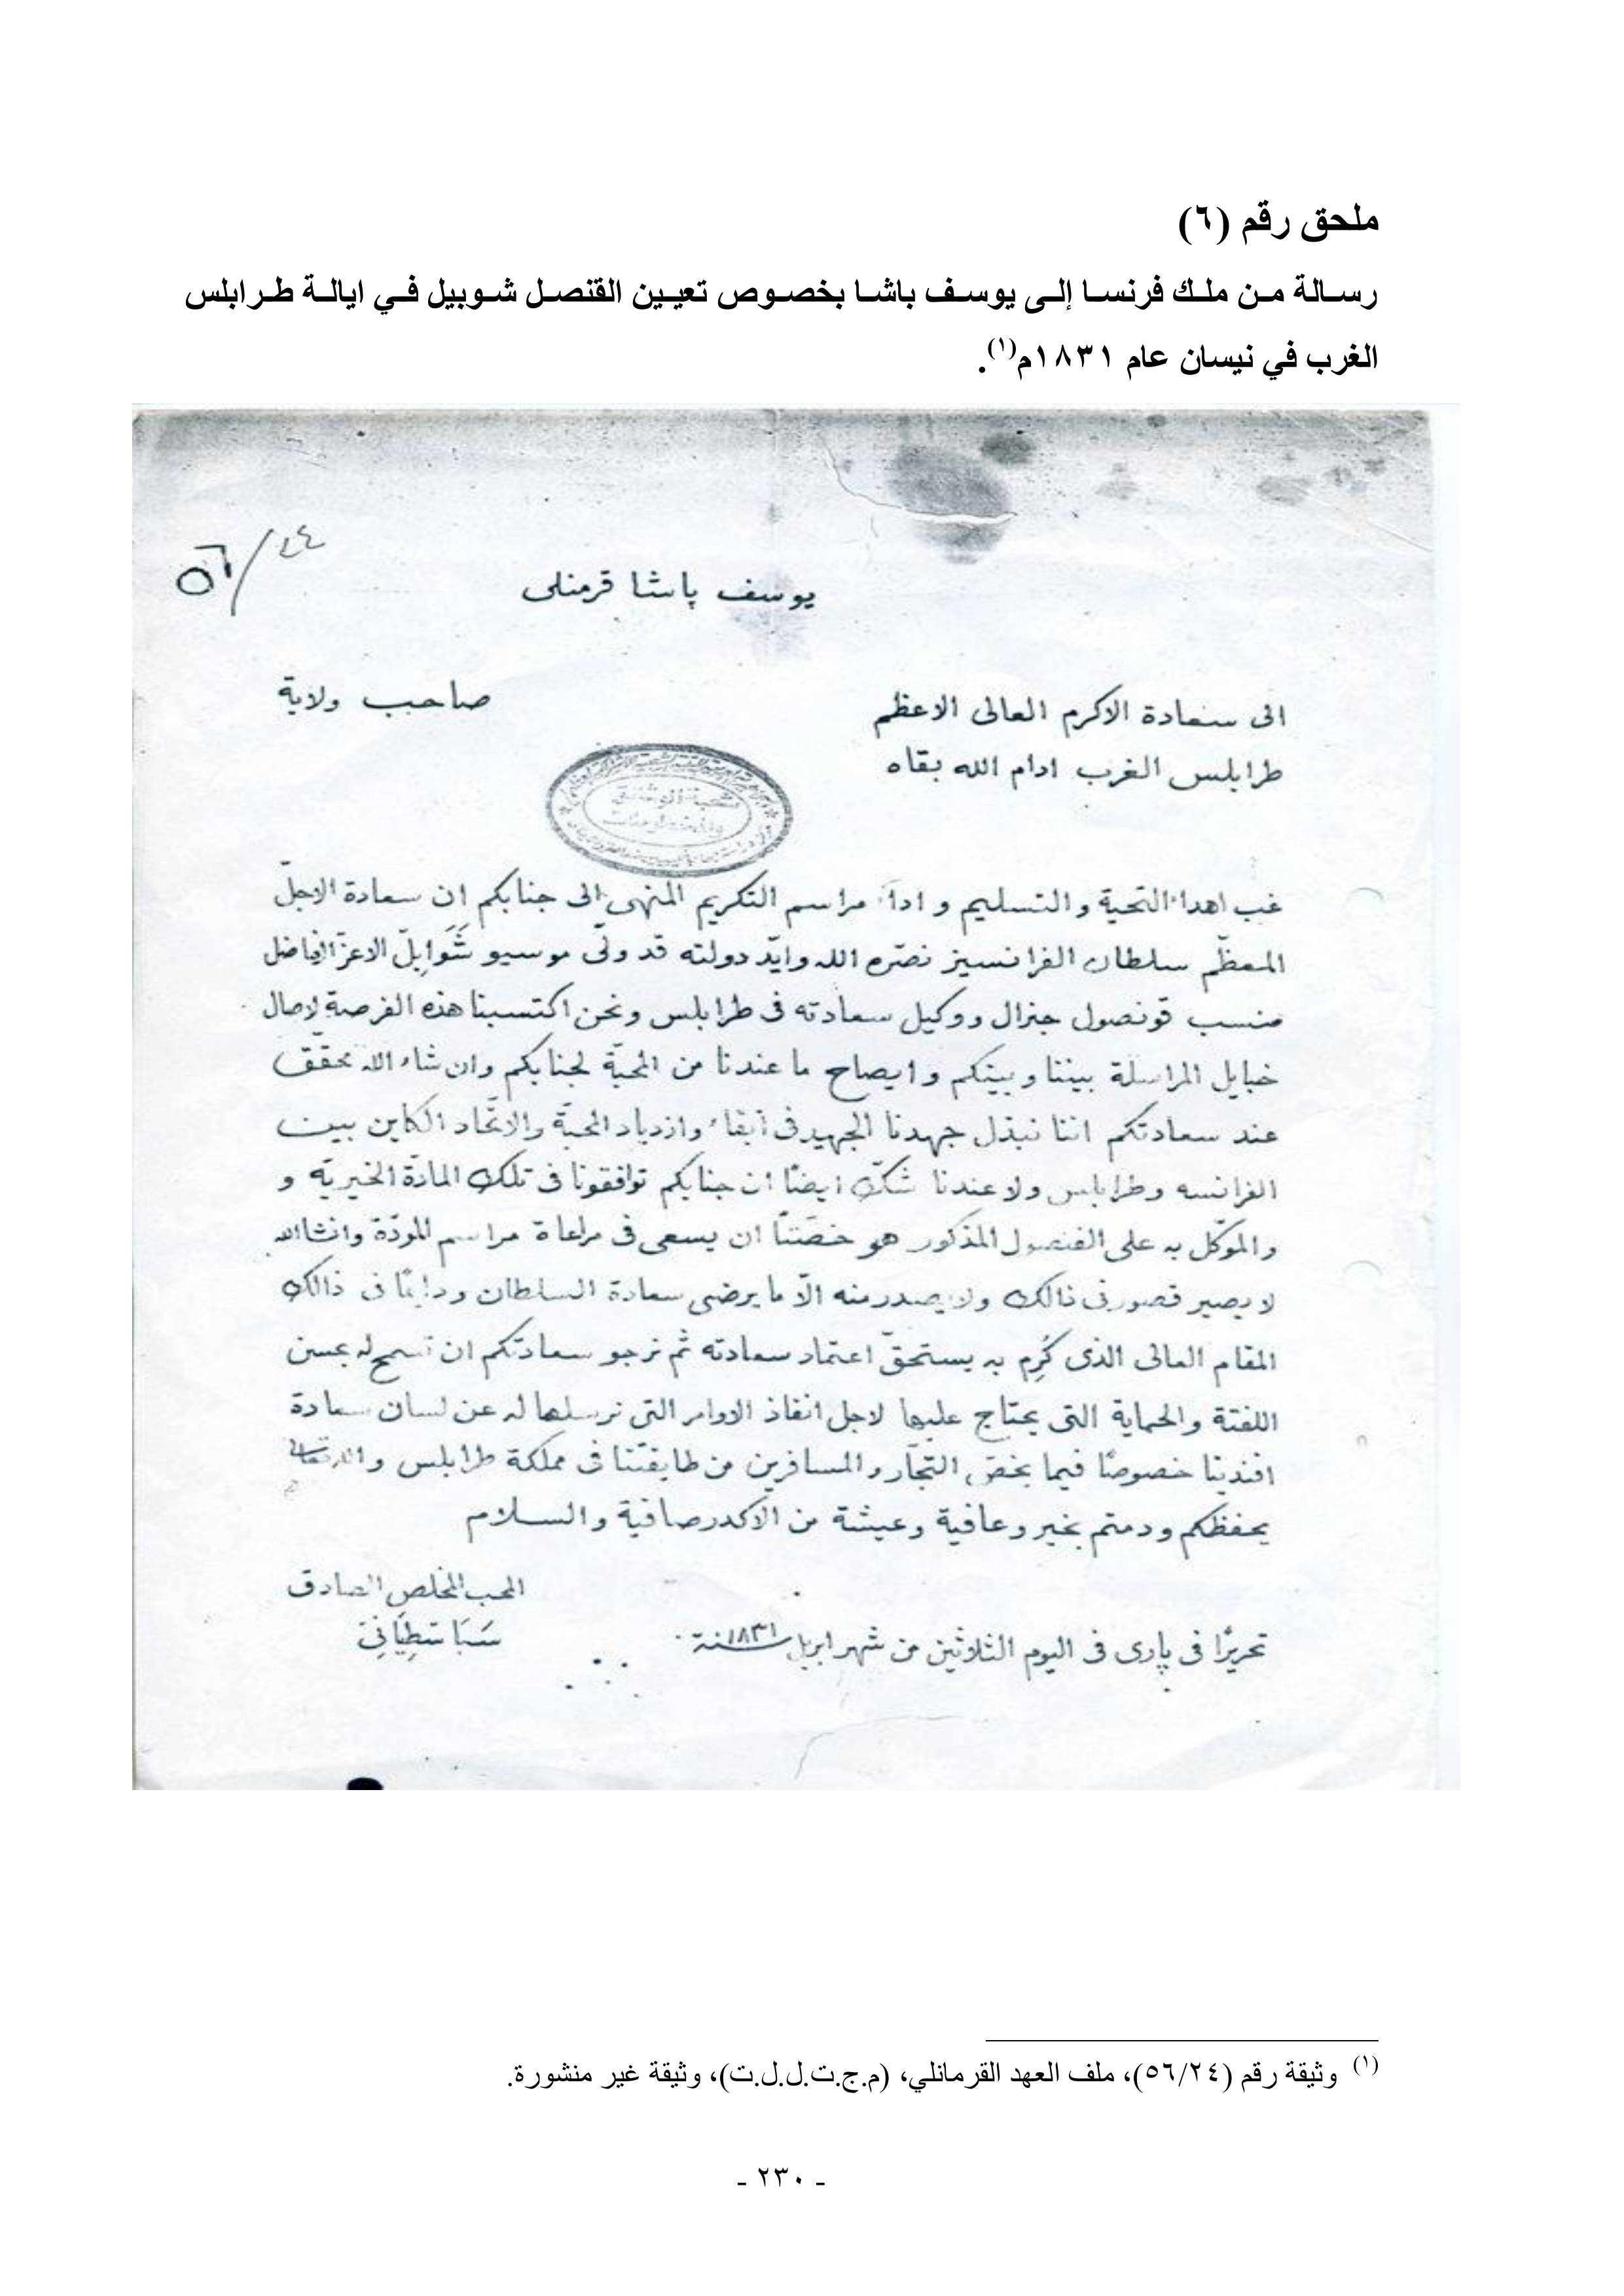 ملحق رقم (٦)
رسالة من ملك فرنسا إلى يوسف باشا بخصوص تعيين القنصل شوبيل في ايالة طرابلس
الغرب في نيسان عام ١٨٣١م(١).
٥٦/٢٤
يوسف پاشا قرمنلى
الى سعادة الاكرم العالى الاعظم صاحب ولاية
طرابلس الغرب ادام الله بقاه
شعبة الوثائق
غب اهداء التحية والتسليم و اداء مراسم التكريم المنهى الى جنابكم ان سعادة الاجلّ
المعظّم سلطان الفرانسيز نصّره الله وايّد دولته قد ولّى موسيو شَوَابِلْ الاعزّ الفاضل
منسب قونصول جنرال ووكيل سعادته فى طرابلس ونحن اكتسبنا هذه الفرصة لاصال
خبايل المراسلة بيننا وبينكم و ايصاح ما عندنا من المحبّة لجنابكم وان شاء الله محقّق
عند سعادتكم اننا نبذل جهدنا الجهيد فى ابقاء وازدياد المحبّة والاتّحاد الكاين بين
الفرانسه وطرابلس ولا عندنا شكّ ايضًا ان جنابكم توافقونا فى تلك المادّة الخيريّه و
والموكّل به على القنصول المذكور هو خصّتنا ان يسعى فى مراعاة مراسم المودّة وانشاالله
لا يصير قصور فى ذالك ولا يصدر منه الّا ما يرضى سعادة السلطان ودايمًا فى ذالك
المقام العالى الذى كُرِم به يستحقّ اعتماد سعادته ثم نرجو سعادتكم ان تسمح له بحسن
اللفتة والحماية التى يحتاج عليها لاجل انفاذ الاوامر التى نرسلها له عن لسان سعادة
افندينا خصوصًا فيما يخصّ التجّار والمسافرين من طايفتنا فى مملكة طرابلس والله تعالى
يحفظكم ودمتم بخير وعافية وعيشة من الاكدر صافية والسلام
المحب المخلص الصادق
تحريرًا فى پارى فى اليوم الثلاثين من شهر ابريل سنة ١٨٣١ سَبَاسْطِيَانِي
(١) وثيقة رقم (٥٦/٢٤)، ملف العهد القرمانلي، (م.ج.ت.ل.ل.ت)، وثيقة غير منشورة.
- ٢٣٠ -